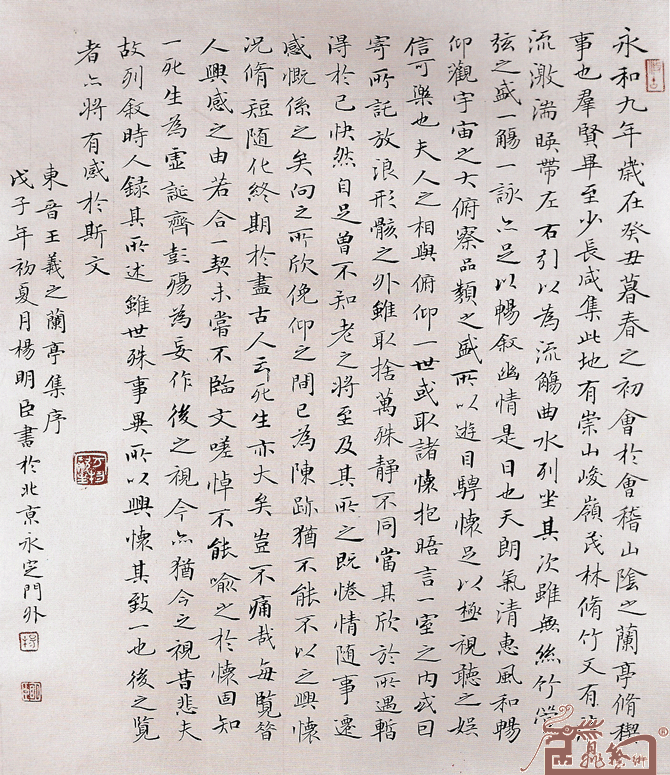 永和九年歲在癸丑暮春之初會於會稽山陰之蘭亭脩稧
事也羣賢畢至少長咸集此地有崇山峻嶺茂林脩竹又有
流激湍暎帶左右引以為流觴曲水列坐其次雖無絲竹管
弦之盛一觴一詠亦足以暢敘幽情是日也天朗氣清惠風和暢
仰觀宇宙之大俯察品類之盛所以遊目騁懷足以極視聽之娛
信可樂也夫人之相與俯仰一世或取諸懷抱晤言一室之內或曰
寄所託放浪形骸之外雖取捨萬殊靜不同當其欣於所遇暫
得於己快然自足曾不知老之將至及其所之既惓情隨事遷
感慨係之矣向之所欣俛仰之間已為陳跡猶不能不以之興懷
況脩短隨化終期於盡古人云死生亦大矣豈不痛哉每覽昔
人興感之由若合一契未嘗不臨文嗟悼不能喻之於懷固知
一死生為虛誕齊彭殤為妄作後之視今亦猶今之視昔悲夫
故列敘時人錄其所述雖世殊事異所以興懷其致一也後之覽
者亦將有感於斯文
東晉王羲之蘭亭集序
戊子年初夏月楊明臣書於北京永定門外